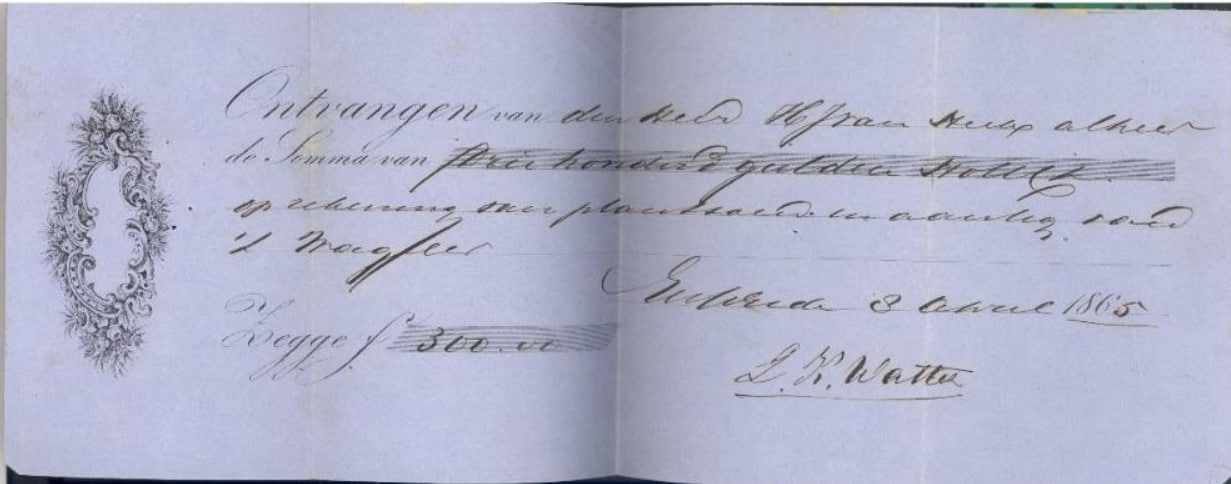 Ontvangen van den Heer H J van Heek alhier
de Somma van Drie honderd gulden Holl Ct
op rekening van plantsoen en aanleg van
't
Enschede 8 April 1865
Zegge f 300.00
D. K. Wattez